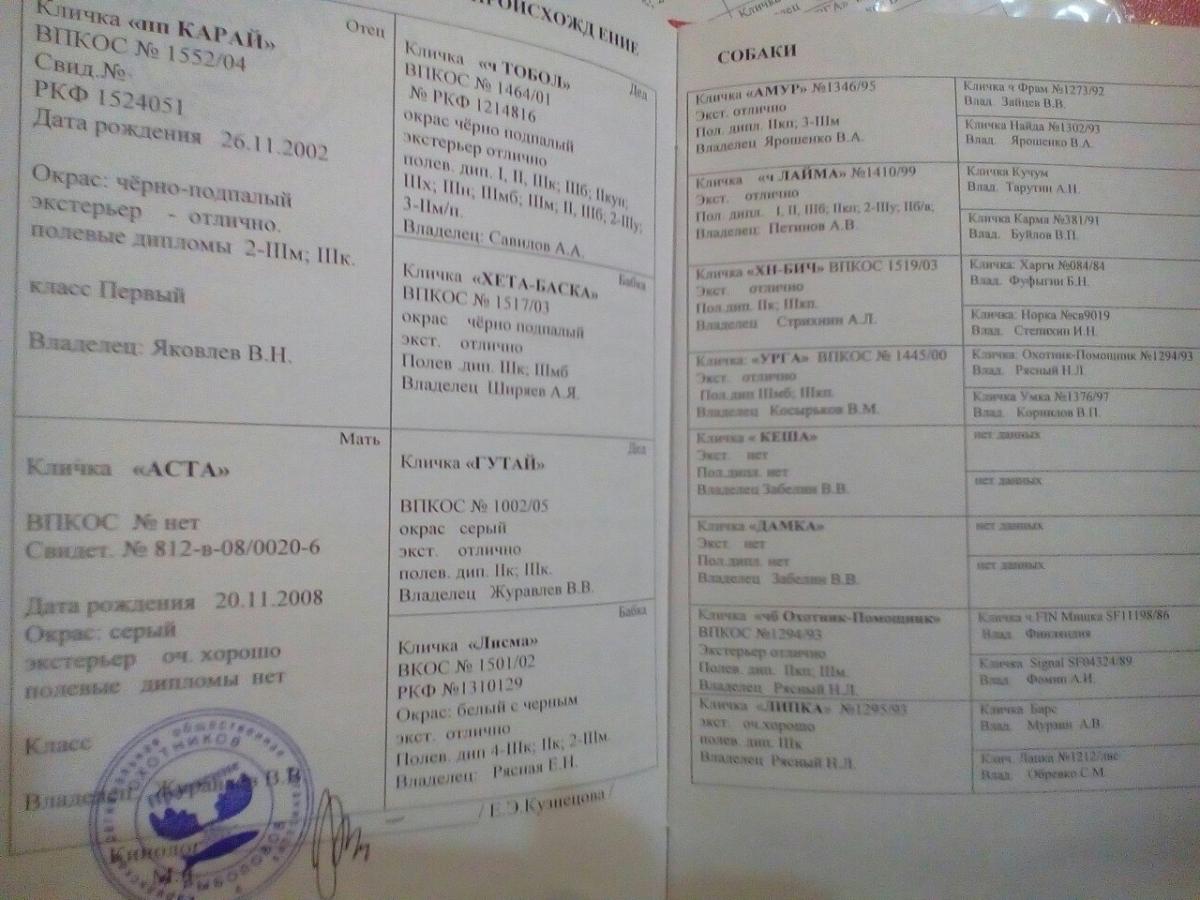 ПРОИСХОЖДЕНИЕ
Отец
Кличка «пп КАРАЙ»
ВПКОС № 1552/04
Свид.№-
РКФ 1524051
Дата рождения 26.11.2002
Окрас: чёрно-подпалый
экстерьер - отлично.
полевые дипломы 2-IIIм; IIIк.
класс Первый
Владелец: Яковлев В.Н.
Мать
Кличка «АСТА»
ВПКОС № нет
Свидет. № 812-в-08/0020-6
Дата рождения 20.11.2008
Окрас: серый
экстерьер оч. хорошо
полевые дипломы нет
Класс
Владелец: Журавлев В.В.
Кинолог
М.П.
/ Е.Э.Кузнецова /
Дед
Кличка «ч ТОБОЛ»
ВПКОС № 1464/01
№ РКФ 1214816
окрас чёрно подпалый
экстерьер отлично
полев. дип. I, II, IIIк; IIIб; IIкун;
IIIх; IIIн; IIIмб; IIIм; II, IIIб; 2-IIIу;
3-IIм/п.
Владелец: Савилов А.А.
Бабка
Кличка «ХЕТА-БАСКА»
ВПКОС № 1517/03
окрас чёрно подпалый
экст. отлично
Полев .дип. IIIк; IIIмб
Владелец Ширяев А.Я.
Дед
Кличка «ГУТАЙ»
ВПКОС № 1002/05
окрас серый
экст. отлично
полев. дип. IIк; IIIк.
Владелец Журавлев В.В.
Бабка
Кличка «Лисма»
ВКОС № 1501/02
РКФ №1310129
Окрас: белый с черным
экст. отлично
Полев. дип 4-IIIк; IIк; 2-IIIм.
Владелец: Рясная Е.Н.
СОБАКИ
Кличка «АМУР» №1346/95
Экст. отлично
Пол. дипл. IIкп; 3-IIIм
Владелец Ярошенко В.А.
Кличка «ч ЛАЙМА» №1410/99
Экст. отлично
Пол. дипл. I, II, IIIб; IIкп; 2-IIIу; IIб/в;
Владелец Петинов А.В.
Кличка «ХН-БИЧ» ВПКОС 1519/03
Экст. отлично
Пол.дип. IIк; IIIкп.
Владелец Стрихнин А.Л.
Кличка: «УРГА» ВПКОС № 1445/00
Экст. отлично
Пол.дип IIIмб; IIIкп.
Владелец Косырьков В.М.
Кличка « КЕША»
Экст. нет
Пол.дипл. нет
Владелец Забелин В.В.
Кличка «ДАМКА»
Экст. нет
Пол.дипл. нет
Владелец Забелин В.В.
Кличка «чб Охотник-Помощник»
ВПКОС №1294/93
Экстерьер отлично
Полев. дип. IIкп; IIIм.
Владелец Рясный Н.Л.
Кличка «ЛИПКА» №1295/93
экст. оч.хорошо
полев. дип. IIIк
Владелец Рясный Н.Л.
Кличка ч Фрам №1273/92
Влад. Зайцев В.В.
Кличка Найда №1302/93
Влад. Ярошенко В.А.
Кличка Кучум
Влад. Тарутин А.Н.
Кличка Карма №381/91
Влад. Буйлов В.П.
Кличка: Харги №084/84
Влад. Фуфыгин Б.Н.
Кличка: Норка №св9019
Влад. Степихин И.Н.
Кличка: Охотник-Помощник №1294/93
Влад. Рясный Н.Л.
Кличка Умка №1376/97
Влад. Корнилов В.П.
нет данных
нет данных
нет данных
нет данных
Кличка ч.FIN Мишка SF11198/86
Влад. Финляндия
Кличка Signal SF04324/89
Влад. Фомин А.И.
Кличка Барс
Влад. Мурзин А.В.
Клич. Лапка №1212/лис
Влад. Обревко С.М.